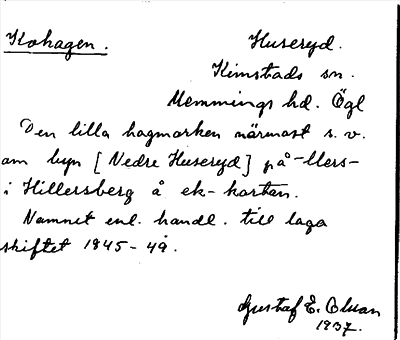 Kohagen.
Huseryd.
Kimstads sn.
Memmings hd. Ögl
Den lilla hagmarken närmast s.v.
om byn [Nedre Huseryd] på -llers-
i Hillersberg å ek-kartan.
Namnet enl. handl. till laga
skiftet 1845-49.
Gustaf E.
1937.